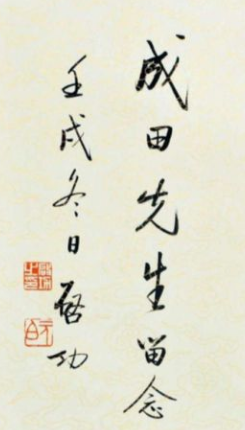 成田先生留念
壬戌冬日
启功